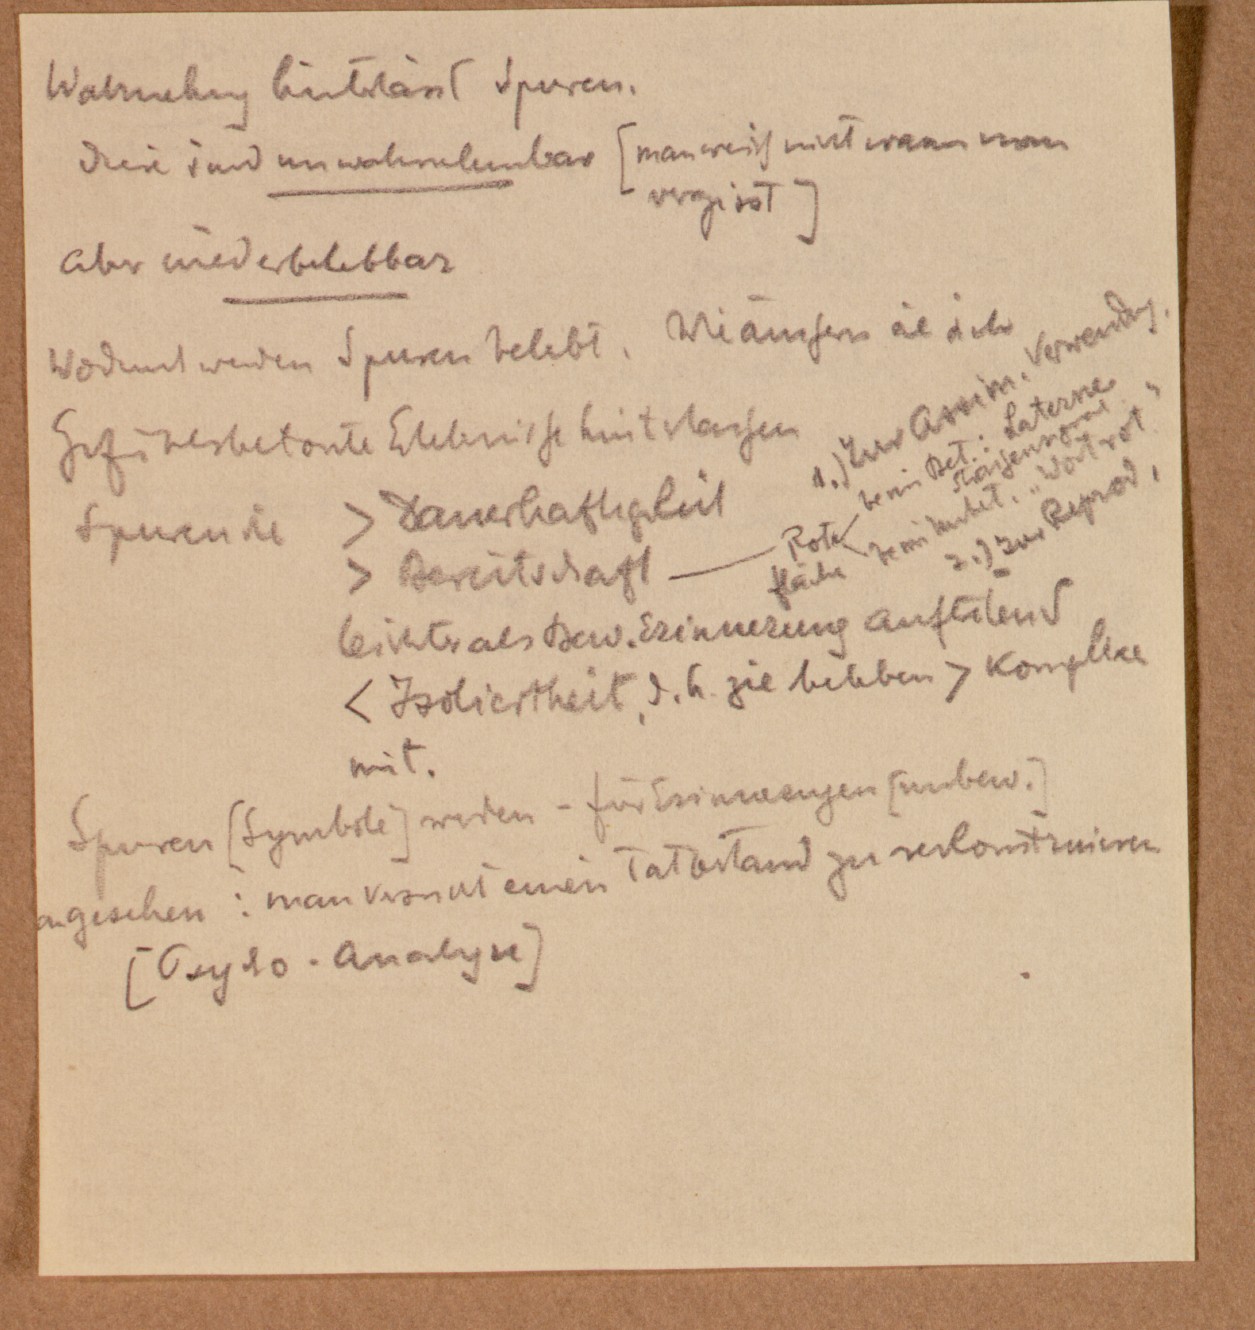 Wahrnehmung hinterlässt Spuren.
diese sind unwahrnehmbar [man weiß nicht wann man
vergisst]
aber wiederbelebbar
Wodurch werden Spuren belebt. Wie äussern sie sich
Gefühlsbetonte Erlebnisse hinterlassen
Spuren die > Dauerhaftigkeit
> Bereitschaft — Rote
fläche
1.) zur Assim. Verwendg.
beim Bet.: Laterne
beim "Wort rot"
2.) zur Reprod.
leichter als Bew. Erinnerung auftretend
< Isoliertheit, d.h. sie beleben > Komplexe
mit.
Spuren [Symbole] werden - für Erinnerungen [unbew.]
angesehen : man versucht einen Tatbestand zu rekonstruieren
[Psycho-Analyse]